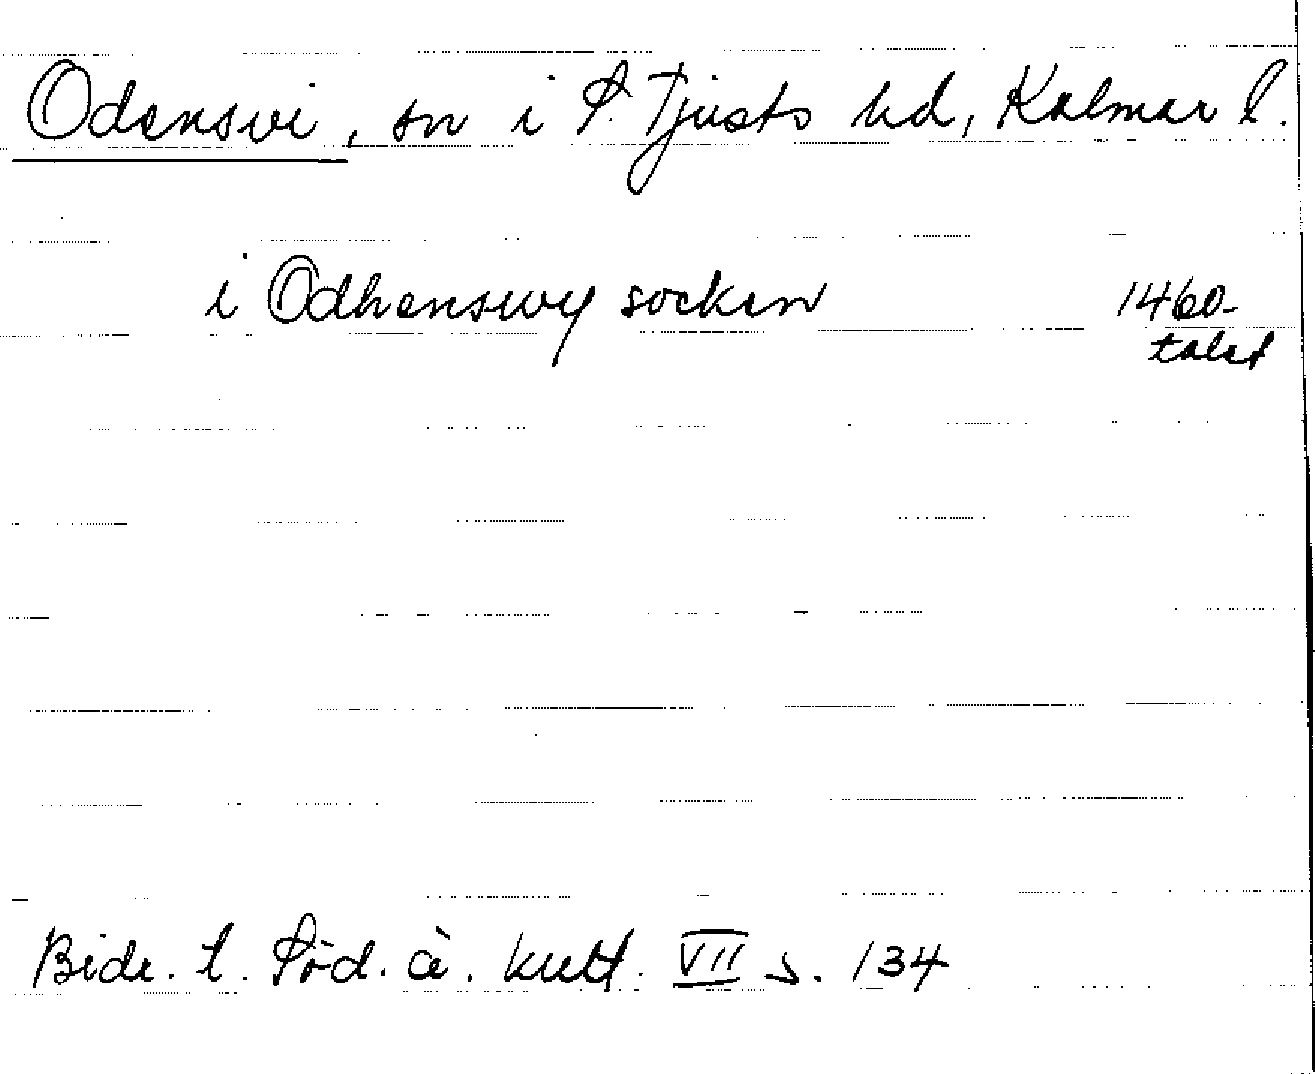 Odensvi, sn i S. Tjusts hd, Kalmar l.
i Odhenswy socken 1460-
talet
Bidr. t. Söd. ä. kult. VII s. 134